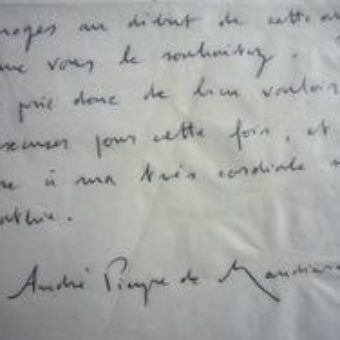 au début de cette
vous le souhaitez.
prie donc de bien vouloir
pour cette fois, et
à ma très cordiale

André Pieyre de Mandiar